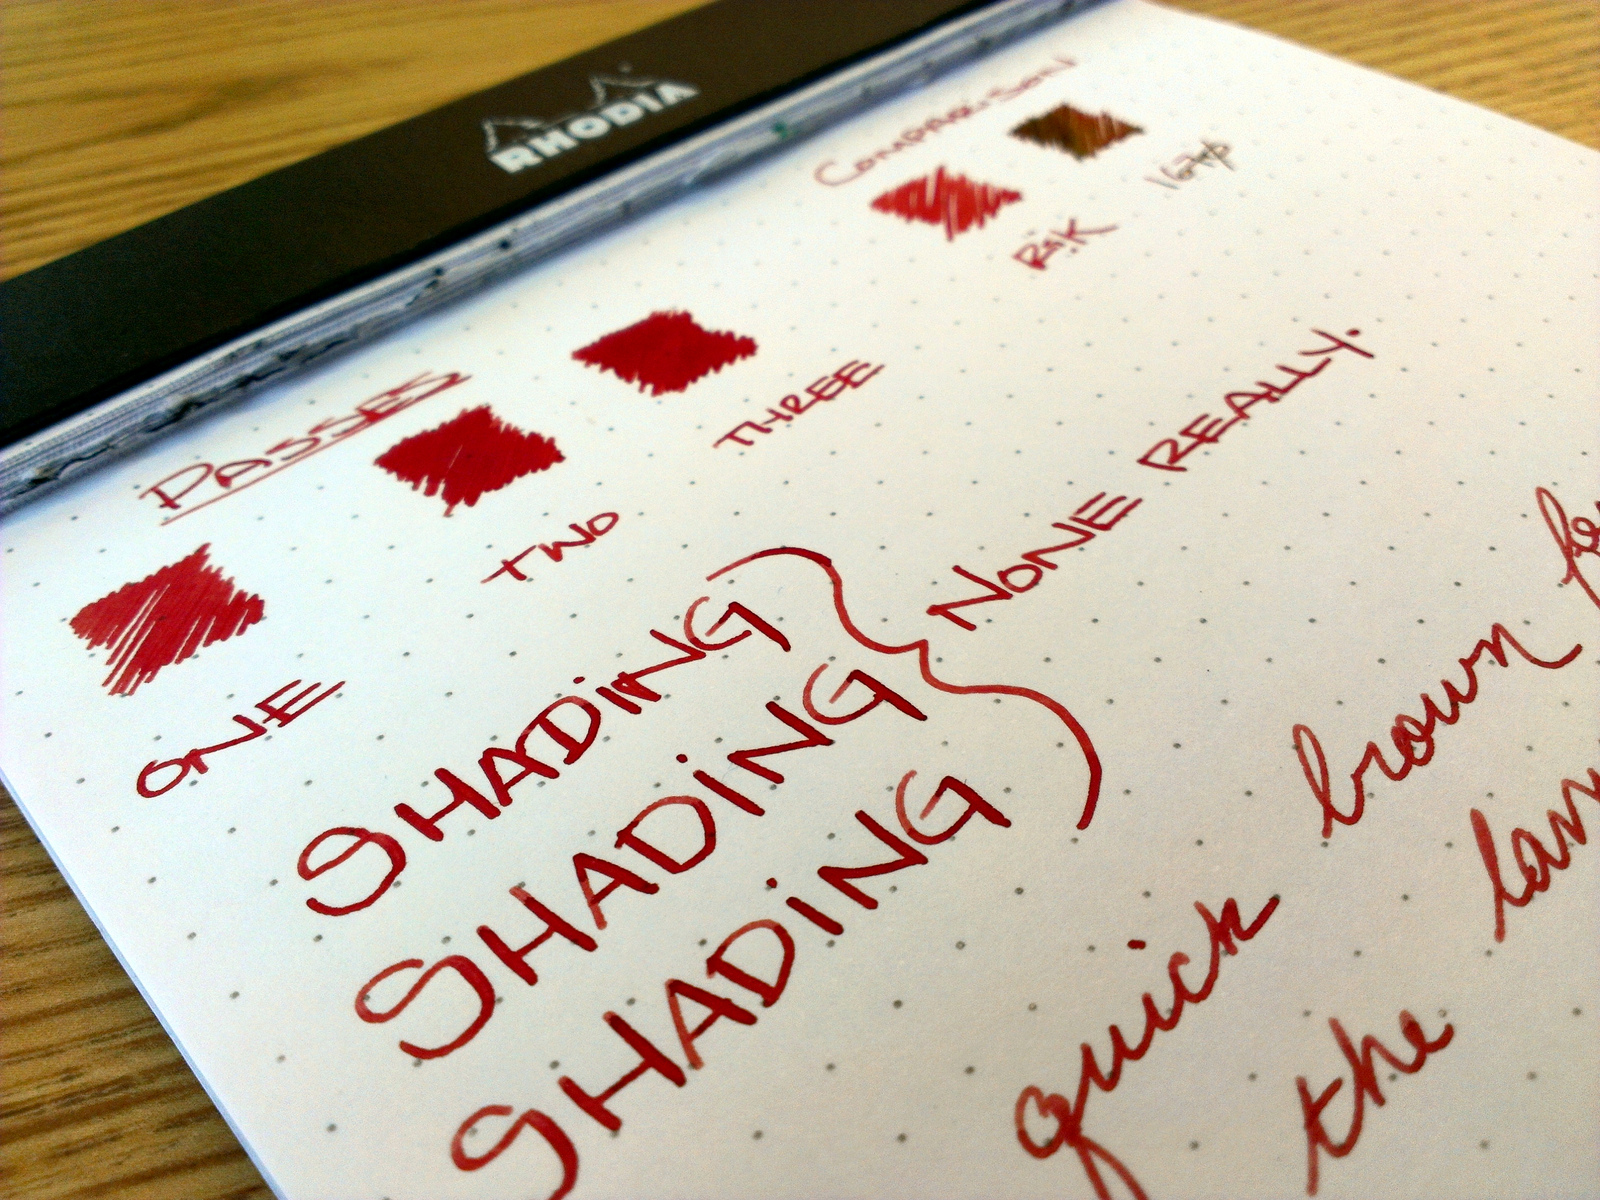 RHODIA
COMPARISON
PASSES
ONE
TWO
THREE
SHADING
SHADING
SHADING
NONE REALLY.
quick brown
the